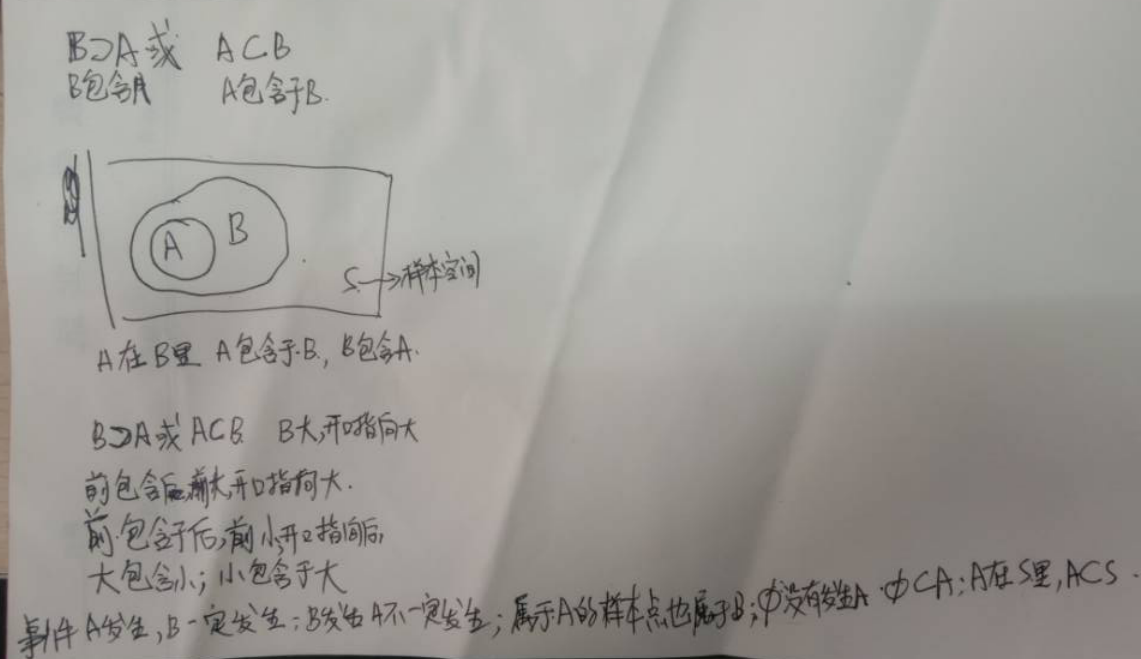 B⊃A或 A⊂B
B包含A A包含于B.
A
B
S→样本空间
A在B里 A包含于B, B包含A.
B⊃A或A⊂B B大,开口指向大
前包含后,前大,开口指向大.
前包含于后,前小,开口指向后,
大包含小;小包含于大
事件A发生,B一定发生;B发生A不一定发生;属于A的样本点也属于B;Φ没有发生A Φ⊂A;A在S里,A⊂S.